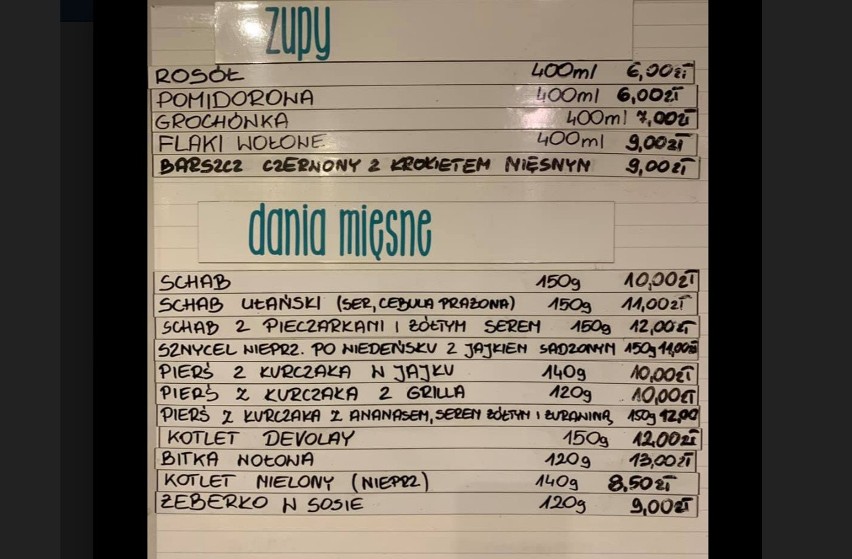 zupy
ROSÓŁ 400ml 6,00zł
POMIDOROWA 400ml 6,00zł
GROCHÓWKA 400ml 7,00zł
FLAKI WOŁOWE 400ml 9,00zł
BARSZCZ CZERWONY Z KROKIETEM MIĘSNYM 9,00zł
dania mięsne
SCHAB 150g 10,00zł
SCHAB UŁAŃSKI (SER, CEBULA PRAŻONA) 150g 11,00zł
SCHAB Z PIECZARKAMI I ŻÓŁTYM SEREM 150g 12,00zł
SZNYCEL WIEPRZ. PO WIEDEŃSKU Z JAJKIEM SADZONYM 150g 11,00zł
PIERŚ Z KURCZAKA W JAJKU 140g 10,00zł
PIERŚ Z KURCZAKA Z GRILLA 120g 10,00zł
PIERŚ Z KURCZAKA Z ANANASEM, SEREM ŻÓŁTYM I ŻURAWINĄ 150g 12,00
KOTLET DEVOLAY 150g 12,00zł
BITKA WOŁOWA 120g 13,00zł
KOTLET MIELONY (WIEPRZ) 140g 8,50zł
ŻEBERKO W SOSIE 120g 9,00zł